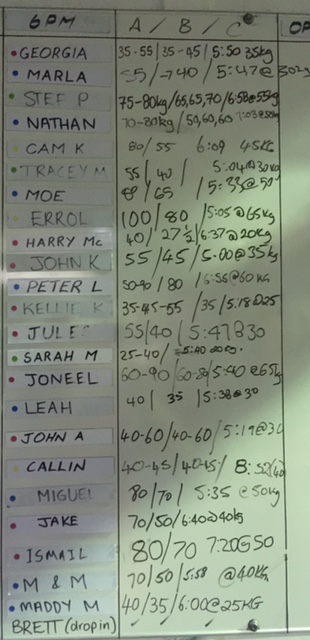 6PM A / B / C
GEORGIA 35-55/35-45/5:50 35kg
MARLA 55/→40/5:47@ 30kg
STEF P 75-80kg/65,65,70/6:58@55kg
NATHAN 70-80kg/50,60,60
CAM K 80/55 6:09 45KG
TRACEY M 55/40/5:04@30kg
MOE 65/5:33@50
ERROL 100/80/5:05@65kg
HARRY Mc 40/27½/6:37@20kg
JOHN K 55/45/5:00@35kg
PETER L 80/6:56@60KG
KELLIE K 35-45-55/35/5:18@25
JULES 55/40/5:47@30
SARAH M 25-40/
JONEEL 60-90/5:40@65kg
LEAH 40/35/5:38@30
JOHN A 40-60/40-60/5:19@30
CALLIN 40-45/40-45/
MIGUEL 80/70/5:35@50kg
JAKE 70/50/6:40@40kg
ISMAIL 80/70 7:20G50
M & M 70/50/5:58 @40KG
MADDY M 40/35/6:00@25KG
BRETT (drop in)